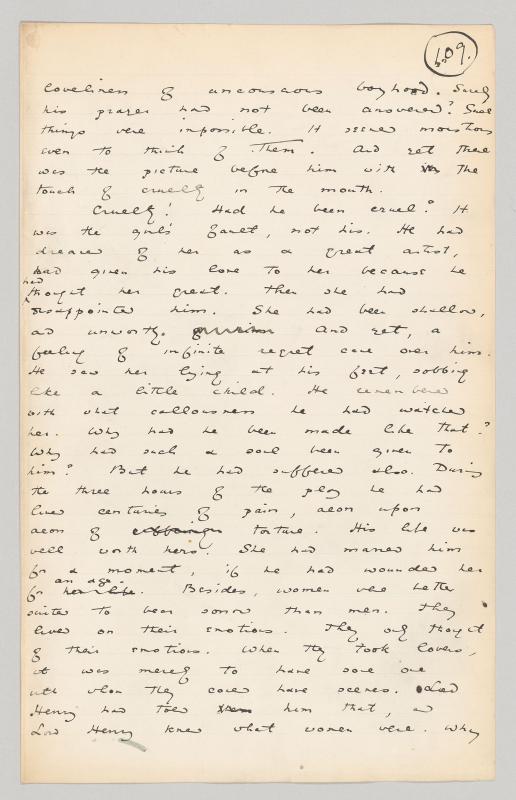 109.
loveliness of unconscious boyhood. Surely
his prayer had not been answered? Such
things were impossible. It seemed monstrous
even to think of them. And yet there
was the picture before him with the
touch of cruelty in the mouth.
Cruelty! Had he been cruel? It
was the girl's fault, not his. He had
dreamed of her as a great artist,
had given his love to her because he
had
thought her great. Then she had
disappointed him. She had been shallow,
and unworthy. And yet, a
feeling of infinite regret came over him.
He saw her lying at his feet, sobbing
like a little child. He remembered
with what callousness he had watched
her. Why had he been made like that?
Why had such a soul been given to
him? But he had suffered also. During
the three hours of the play he had
lived centuries of pain, aeon upon
aeon of torture. His life was
well worth hers. She had marred him
for a moment, if he had wounded her
an age.
for her life. Besides, women were better
suited to bear sorrow than men. They
lived on their emotions. They only thought
of their emotions. When they took lovers,
it was merely to have some one
with whom they could have scenes. Lord
Henry had told him that, and
Lord Henry knew what women were. Why